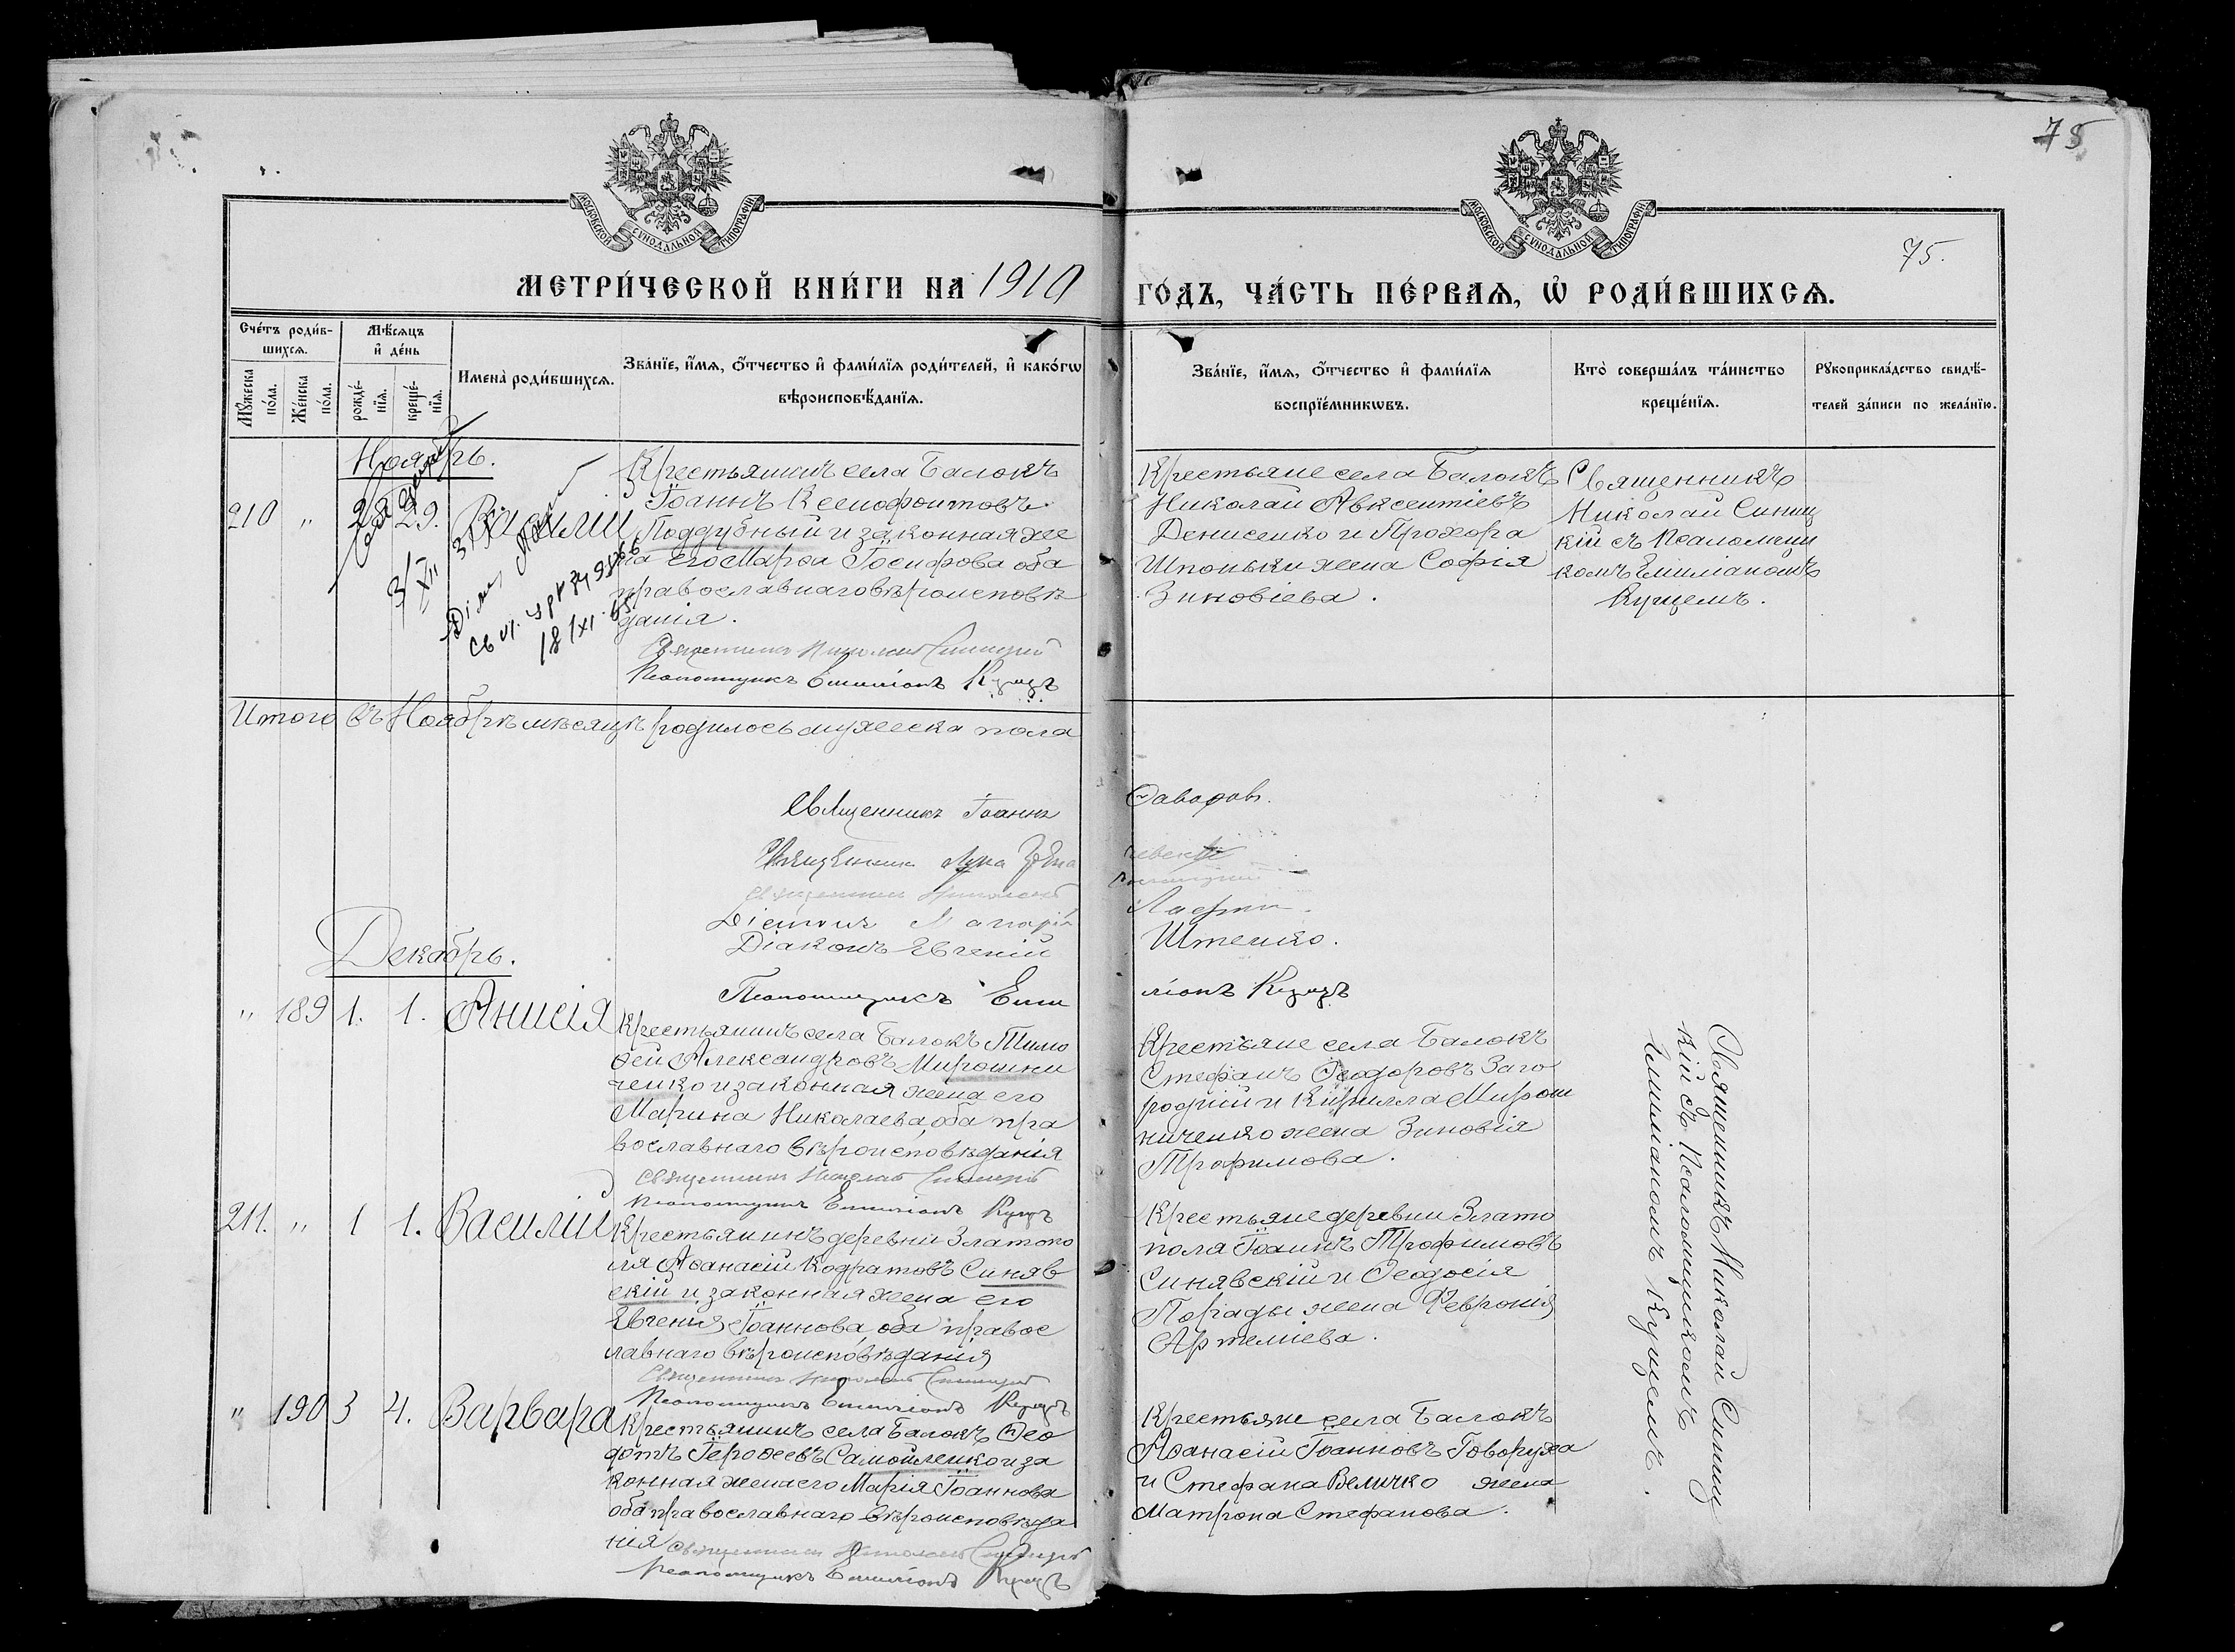 78
75.
МОСКОВСКОЙ СУНОДАЛЬНОЙ ТИПОГРАФІИ
МОСКОВСКОЙ СУНОДАЛЬНОЙ ТИПОГРАФІИ
МЕТРИ́ЧЕСКОЙ КНИ́ГИ НА 1910
ГО́ДЪ, ЧА́СТЬ ПЕ́РВАѦ, Ѡ РОДИ́ВШИХСѦ.
Сче́тъ роди́в-
шихсѧ.
Мꙋ́жеска
по́ла.
Же́нска
по́ла.
Мѣ́сѧцъ
и҆ де́нь
рожде́-
нїѧ.
креще́-
нїѧ.
Имена̀ роди́вшихсѧ.
Зва́нїе, и҆́мѧ, ѻ҆́тчество и҆ фами́лїѧ роди́телей, и҆ како́гѡ
вѣроисповѣ́данїѧ.
Зва́нїе, и҆́мѧ, ѻ҆́тчество и҆ фами́лїѧ
воспрїе́мникѡвъ.
Кто̀ соверша́лъ та́инство
креще́нїѧ.
Рꙋкоприкла́дство свидѣ́-
телей за́писи по жела́нїю.
Ноябрь.
210 " 28 29. Василій
Крестьянинъ села Балокъ
Іоаннъ Ксенофонтовъ
Поддубный и законная же
на его Марѳа Іосифова оба
православнаго вѣроисповѣ
данія.
Священникъ Николай Синицкій
Псаломщикъ Емиліанъ Куцъ
3/XII
18/XI
Крестьяне села Балокъ
Николай Авксентіевъ
Денисенко и Прохора
Шпоньки жена Софія
Зиновіева.
Священникъ
Николай Синиц
кій съ Псаломщи
комъ Емиліаномъ
Куцемъ.
Итого въ Ноябрѣ мѣсяцѣ родилось мужеска пола
Священникъ Іоаннъ
Священникъ Лука
Священникъ Николай
Діаконъ
Діаконъ Евгеній Штенко.
Псаломщикъ Емиліанъ Куцъ
Декабрь.
" 189 1. 1. Анисія
Крестьянинъ села Балокъ Тимо
ѳей Александровъ Мирошни
ченко и законная жена его
Марина Николаева, оба пра
вославнаго вѣроисповѣданія
Священникъ Николай Синицкій
Псаломщикъ Емиліанъ Куцъ
Крестьяне села Балокъ
Стефанъ Ѳеодоровъ Заго
родній и Кирилла Мирош
ниченко жена Зиновія
Трофимова.
Священникъ Николай Синиц
кій съ Псаломщикомъ
Емиліаномъ Куцемъ.
211. " 1 1. Василій
Крестьянинъ деревни Златопо
ля Аѳанасій Кодратовъ Синяв
скій и законная жена его
Евгенія Іоаннова, оба правос
лавнаго вѣроисповѣданія
Священникъ Николай Синицкій
Псаломщикъ Емиліанъ Куцъ
Крестьяне деревни Злато
поля Іоаннъ Трофимовъ
Синявскій и Ѳеодосія
Порады жена Февронія
Артеміева.
" 190 3 4. Варвара
Крестьянинъ села Балокъ Ѳео
дотъ Героѳеевъ Самойленко и за
конная жена его Марія Іоаннова
оба православнаго вѣроисповѣда
нія
Священникъ Николай Синицкій
Псаломщикъ Емиліанъ Куцъ
Крестьяне села Балокъ
Аѳанасій Іоанновъ Говоруха
и Стефана Величко жена
Матрона Стефанова.